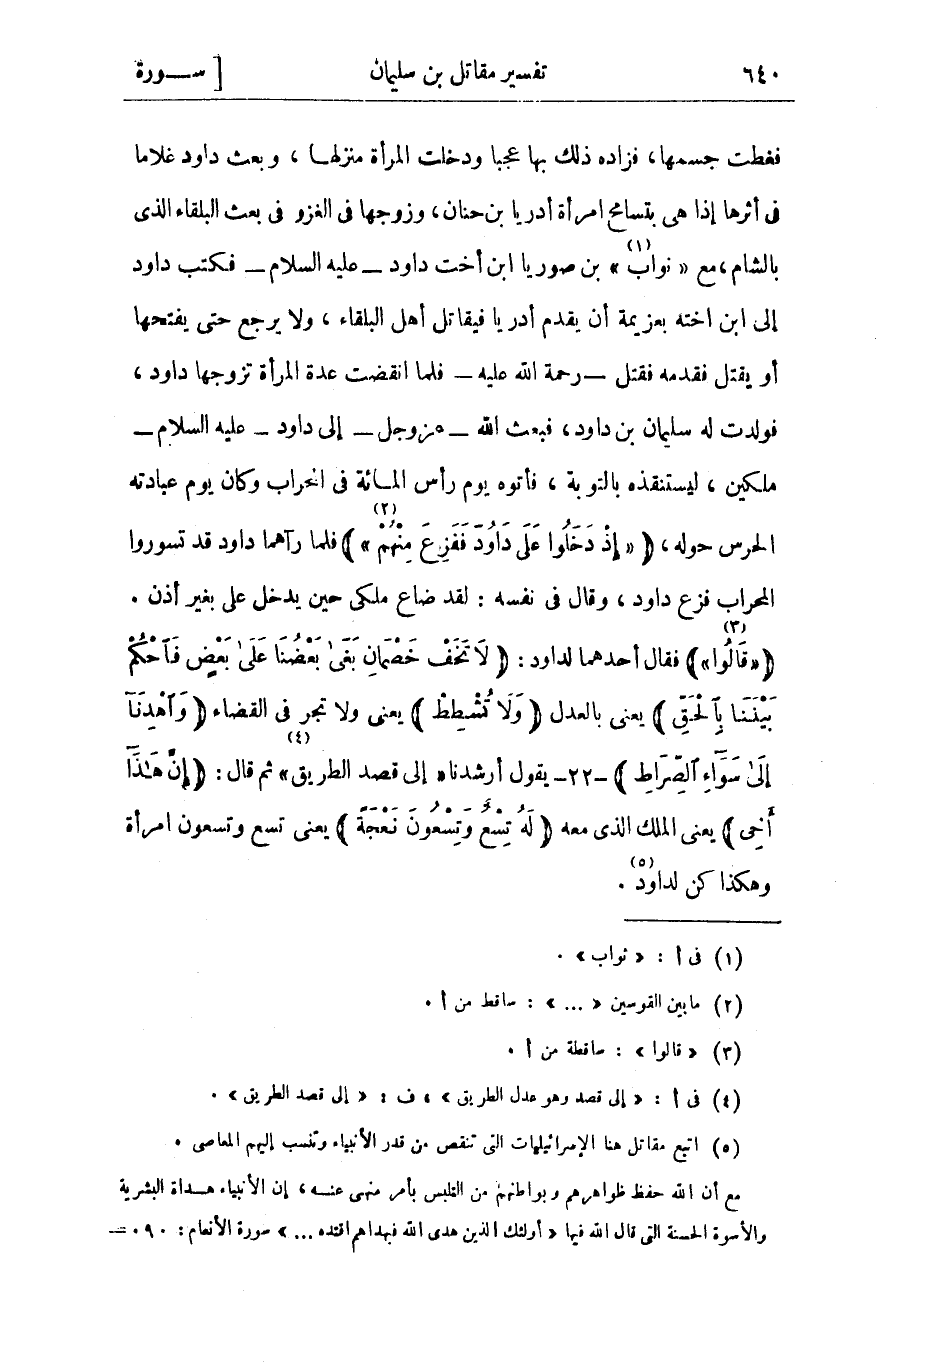 ٦٤٠ تفسير مقاتل بن سليمان [ ســورة
فغطت جسمها، فزاده ذلك بها عجبا ودخلت المرأة منزلهـا ، وبعث داود غلاما
فى أثرها إذا هى بتسامح امرأة أدريا بن حنان، وزوجها فى الغزو فى بعث البلقاء الذى
بالشام، مع « نواب » (١) بن صوريا ابن أخت داود ــ عليه السلام ــ فكتب داود
إلى ابن اخته بعزيمة أن يقدم أدريا فيقاتل أهل البلقاء ، ولا يرجع حتى يفتحها
أو يقتل فقدمه فقتل ــ رحمة الله عليه ــ فلما انقضت عدة المرأة تزوجها داود ،
فولدت له سليمان بن داود، فبعث الله ــ عزوجل ــ إلى داود ــ عليه السلام ــ
ملكين ، ليستنقذه بالتوبة ، فأتوه يوم رأس المـائة فى المحراب وكان يوم عبادته
الحرس حوله، ﴿ « إِذْ دَخَلُوا عَلَىٰ دَاوُدَ فَفَزِعَ مِنْهُمْ » (٢) ﴾ فلما رآهما داود قد تسوروا
المحراب فزع داود ، وقال فى نفسه : لقد ضاع ملكى حين يدخل على بغير أذن .
﴿ « قَالُوا » (٣) ﴾ فقال أحدهما لداود : ﴿ لَا تَخَفْ خَصْمَانِ بَغَىٰ بَعْضُنَا عَلَىٰ بَعْضٍ فَٱحْكُمْ
بَيْنَنَا بِٱلْحَقِّ ﴾ يعنى بالعدل ﴿ وَلَا تُشْطِطْ ﴾ يعنى ولا تجر فى القضاء ﴿ وَٱهْدِنَآ
إِلَىٰ سَوَآءِ ٱلصِّرَاطِ ﴾ ــ ٢٢ ــ يقول أرشدنا « إلى قصد الطريق » (٤) ثم قال : ﴿ إِنَّ هَـٰذَآ
أَخِى ﴾ يعنى الملك الذى معه ﴿ لَهُ تِسْعٌ وَتِسْعُونَ نَعْجَةً ﴾ يعنى تسع وتسعون امرأة
وهكذا كن لداود (٥) .
(١) فى أ : « ثواب » .
(٢) مابين القوسين « ... » : ساقط من أ .
(٣) « قالوا » : ساقطة من أ .
(٤) فى أ : « إلى قصد وهو عدل الطريق » ، ف : « إلى قصد الطريق » .
(٥) اتبع مقاتل هنا الإسرائيليات التى تنقص من قدر الأنبياء وتنسب إليهم المعاصى .
مع أن الله حفظ ظواهرهم وبواطنهم من التلبس بأمر منهى عنـه ، إن الأنبياء هـداة البشرية
والأسوة الحسنة التى قال الله فيها « أولئك الذين هدى الله فبهداهم اقتده ... » سورة الأنعام : ٩٠ . =